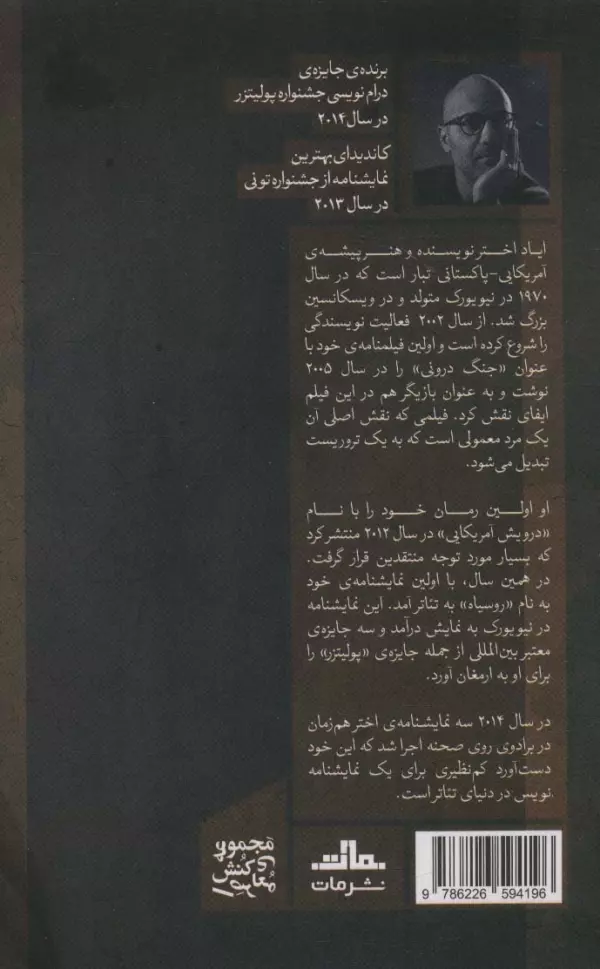 برنده‌ی جایزه‌ی
درام نویسی جشنواره پولیتزر
در سال ۲۰۱۴
کاندیدای بهترین
نمایشنامه از جشنواره تونی
در سال ۲۰۱۳
ایاد اختر نویسنده و هنرپیشه‌ی
آمریکایی-پاکستانی تبار است که در سال
۱۹۷۰ در نیویورک متولد و در ویسکانسین
بزرگ شد. از سال ۲۰۰۲ فعالیت نویسندگی
را شروع کرده است و اولین فیلمنامه‌ی خود با
عنوان «جنگ درونی» را در سال ۲۰۰۵
نوشت و به عنوان بازیگر هم در این فیلم
ایفای نقش کرد. فیلمی که نقش اصلی آن
یک مرد معمولی است که به یک تروریست
تبدیل می‌شود.
او اولین رمان خود را با نام
«درویش آمریکایی» در سال ۲۰۱۲ منتشر کرد
که بسیار مورد توجه منتقدین قرار گرفت.
در همین سال، با اولین نمایشنامه‌ی خود
به نام «روسیاه» به تئاتر آمد. این نمایشنامه
در نیویورک به نمایش درآمد و سه جایزه‌ی
معتبر بین‌المللی از جمله جایزه‌ی «پولیتزر» را
برای او به ارمغان آورد.
در سال ۲۰۱۴ سه نمایشنامه‌ی اختر هم‌زمان
در برادوی روی صحنه اجرا شد که این خود
دست‌آورد کم‌نظیری برای یک نمایشنامه
نویس در دنیای تئاتر است.
مجموعه
کنش
معاصر
مات
نشر مات
9 786226 594196